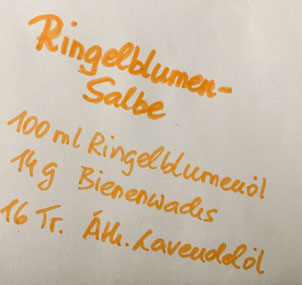 Ringelblumen-
Salbe
100 ml Ringelblumenöl
14 g Bienenwachs
16 Tr. Äth. Lavendelöl